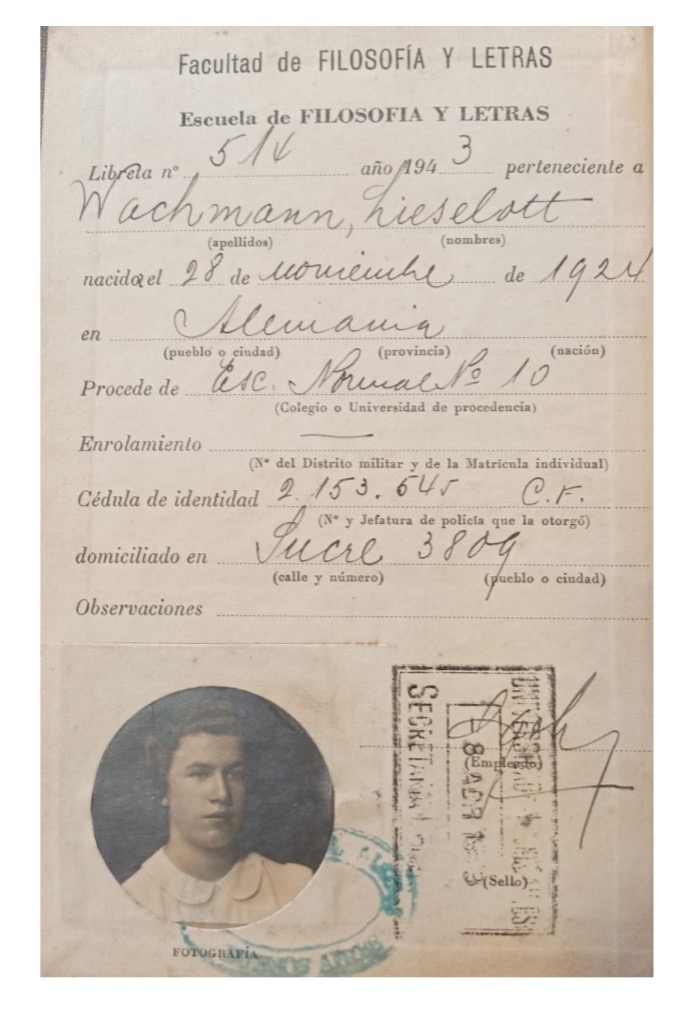 Facultad de FILOSOFÍA Y LETRAS
Escuela de FILOSOFIA Y LETRAS
Libreta nº 514 año 1943 perteneciente a
Wachmann, Lieselott
(apellidos) (nombres)
nacida el 28 de noviembre de 1924
en Alemania
(pueblo o ciudad) (provincia) (nación)
Procede de Esc. Normal Nº 10
(Colegio o Universidad de procedencia)
Enrolamiento —
(Nº del Distrito militar y de la Matrícula individual)
Cédula de identidad 2.153.645 C.F.
(Nº y Jefatura de policía que la otorgó)
domiciliado en Sucre 3809
(calle y número) (pueblo o ciudad)
Observaciones
(Empleado)
(Sello)
FOTOGRAFÍA
BUENOS AIRES